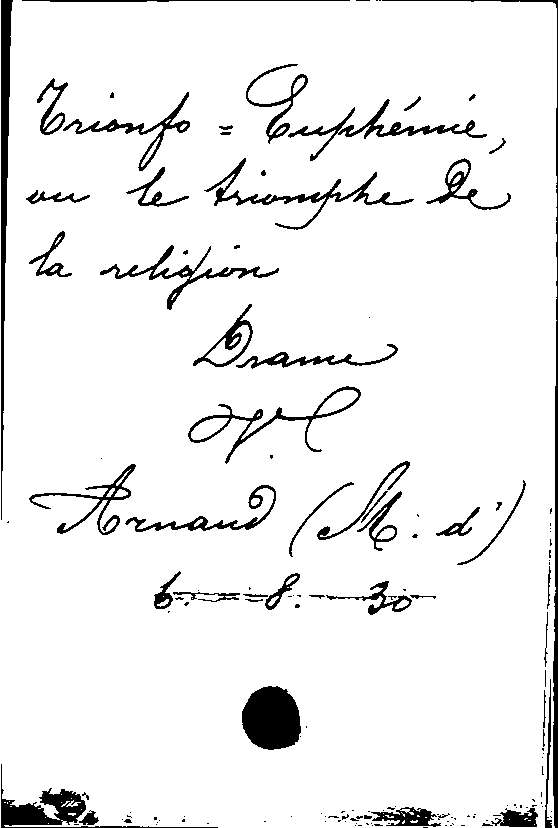 Trionfo = Euphémie,
ou le triomphe de
la religion
Drame
V. C
Arnaud (M. d')
6. 8. 30